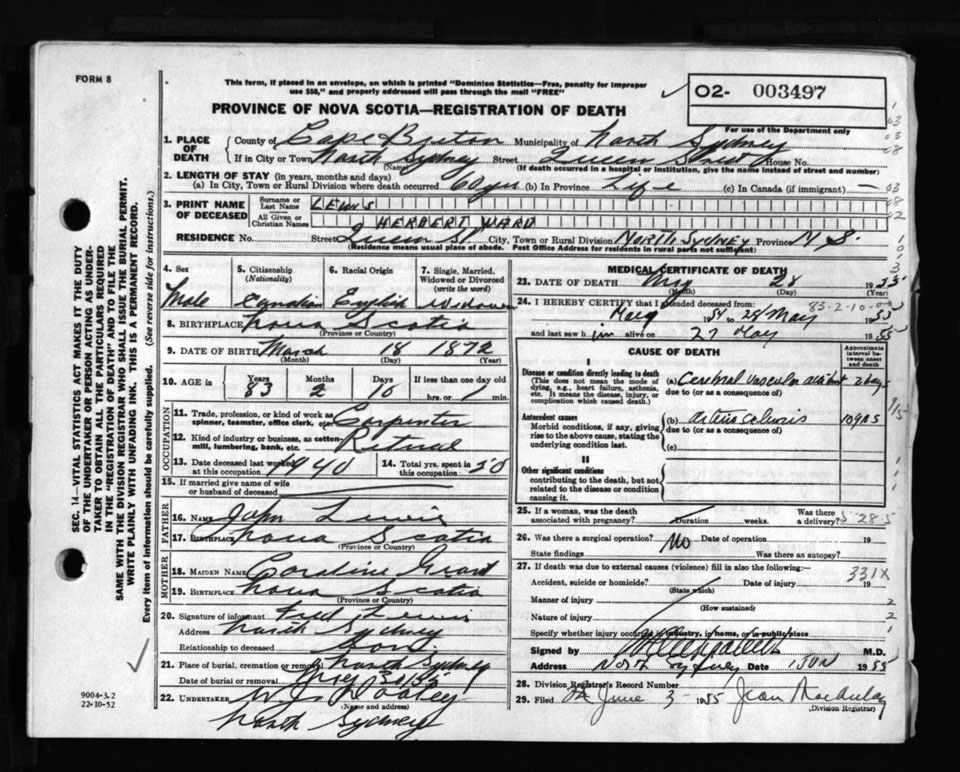 FORM 8
This form, if placed in an envelope, on which is printed "Dominion Statistics—Free, penalty for improper
use $50," and properly addressed will pass through the mail "FREE"
PROVINCE OF NOVA SCOTIA—REGISTRATION OF DEATH
02- 003497
For use of the Department only
1. PLACE OF DEATH
County of Cape Breton Municipality of North Sydney
If in City or Town North Sydney Street Queen Street House No.
(Name) (If death occurred in a hospital or institution, give the name instead of street and number)
2. LENGTH OF STAY (in years, months and days)
(a) In City, Town or Rural Division where death occurred 60 yrs (b) In Province Life (c) In Canada (if immigrant) —
3. PRINT NAME OF DECEASED
Surname or Last Name LEWIS
All Given or Christian Names HERBERT WARD
RESIDENCE No. Street Queen St. City, Town or Rural Division NORTH SYDNEY Province N.S.
(Residence means usual place of abode. Post Office Address for residents in rural parts not sufficient)
4. Sex
Male
5. Citizenship (Nationality)
Canadian
6. Racial Origin
English
7. Single, Married, Widowed or Divorced (write the word)
Widower
8. BIRTHPLACE Nova Scotia
(Province or Country)
9. DATE OF BIRTH March 18 1872
(Month) (Day) (Year)
10. AGE in Years 83 Months 2 Days 10 If less than one day old
hrs. or min.
OCCUPATION
11. Trade, profession, or kind of work as spinner, teamster, office clerk, etc. Carpenter
12. Kind of industry or business, as cotton-mill, lumbering, bank, etc. Retired
13. Date deceased last worked at this occupation 1940
14. Total yrs. spent in this occupation 50
15. If married give name of wife or husband of deceased
FATHER
16. NAME John Lewis
17. BIRTHPLACE Nova Scotia
(Province or Country)
MOTHER
18. MAIDEN NAME Caroline Grant
19. BIRTHPLACE Nova Scotia
(Province or Country)
20. Signature of informant Fred Lewis
Address North Sydney
Relationship to deceased Son
21. Place of burial, cremation or removal North Sydney
Date of burial or removal May 30/55
22. UNDERTAKER W. J. Dooley
(Name and address)
North Sydney
MEDICAL CERTIFICATE OF DEATH
23. DATE OF DEATH May 28 1955
(Month) (Day) (Year)
24. I HEREBY CERTIFY that I attended deceased from:
83-2-10
May 1954 to 28 May 1955
and last saw him alive on 27 May 1955
CAUSE OF DEATH
Approximate interval between onset and death
I
Disease or condition directly leading to death
(This does not mean the mode of dying, e.g., heart failure, asthenia, etc. It means the disease, injury, or complication which caused death.)
(a) Cerebral vascular accident 2 days
due to (or as a consequence of)
Antecedent causes
Morbid conditions, if any, giving rise to the above cause, stating the underlying condition last.
(b) arteriosclerosis 10 yrs
due to (or as a consequence of)
(c)
II
Other significant conditions
contributing to the death, but not related to the disease or condition causing it.
25. If a woman, was the death associated with pregnancy? Duration weeks. Was there a delivery?
26. Was there a surgical operation? No Date of operation 19
State findings Was there an autopsy?
27. If death was due to external causes (violence) fill in also the following: 331X
Accident, suicide or homicide? Date of injury 19
(State which)
Manner of injury
(How sustained)
Nature of injury
Specify whether injury occurred in industry, in home, or in public place
Signed by M.D.
Address North Sydney Date 1 JUN 1955
28. Division Registrar's Record Number
29. Filed June 3 1955
(Division Registrar)
SEC. 14—VITAL STATISTICS ACT MAKES IT THE DUTY
OF THE UNDERTAKER OR PERSON ACTING AS UNDER-
TAKER TO OBTAIN ALL THE PARTICULARS REQUIRED
IN THE "REGISTRATION OF DEATH" AND TO FILE THE
SAME WITH THE DIVISION REGISTRAR WHO SHALL ISSUE THE BURIAL PERMIT.
WRITE PLAINLY WITH UNFADING INK. THIS IS A PERMANENT RECORD.
Every item of information should be carefully supplied. (See reverse side for instructions.)
9004-3.2
22-10-52